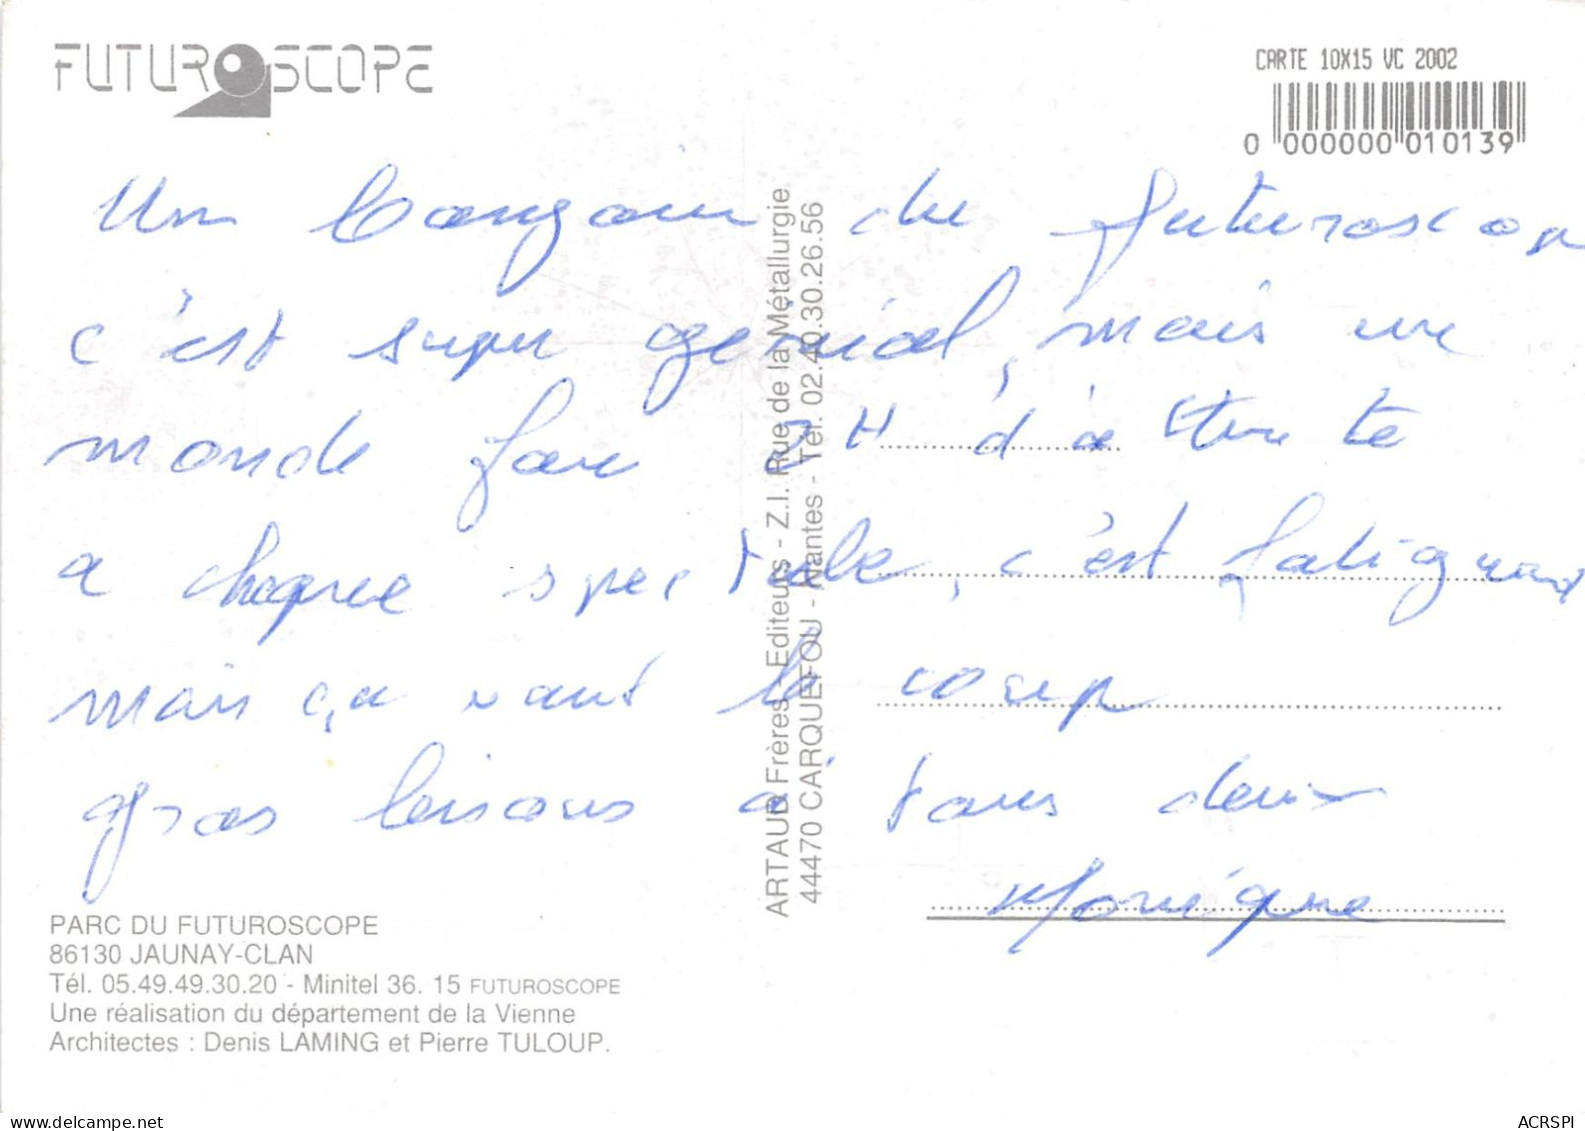 FUTUROSCOPE
CARTE 10X15 VC 2002
0 000000 010139
Un du futuroscop
c'est super génial, mais un
monde fou 2H d'attente
a chaque spectacle, c'est fatiguant
mais ça vaut le coup
gros bisous à tous deux
Monique
ARTAUD Frères Editeurs - Z.I. Rue de la Métallurgie
44470 CARQUEFOU - Nantes - Tél. 02.40.30.26.56
PARC DU FUTUROSCOPE
86130 JAUNAY-CLAN
Tél. 05.49.49.30.20 - Minitel 36. 15 FUTUROSCOPE
Une réalisation du département de la Vienne
Architectes : Denis LAMING et Pierre TULOUP.
ACRSPI